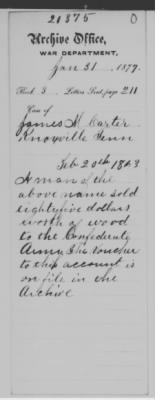 20375
Archive Office,
WAR DEPARTMENT,
Jan 31 1877.
Book 3 Letters Sent, page 211
Case of
James M. Carter
Knoxville Tenn
Feb 20th 1863
A man of the
above name sold
eightyfive dollars
worth of wood
to the Confederate
Army. The voucher
to this account is
on file in the
Archive